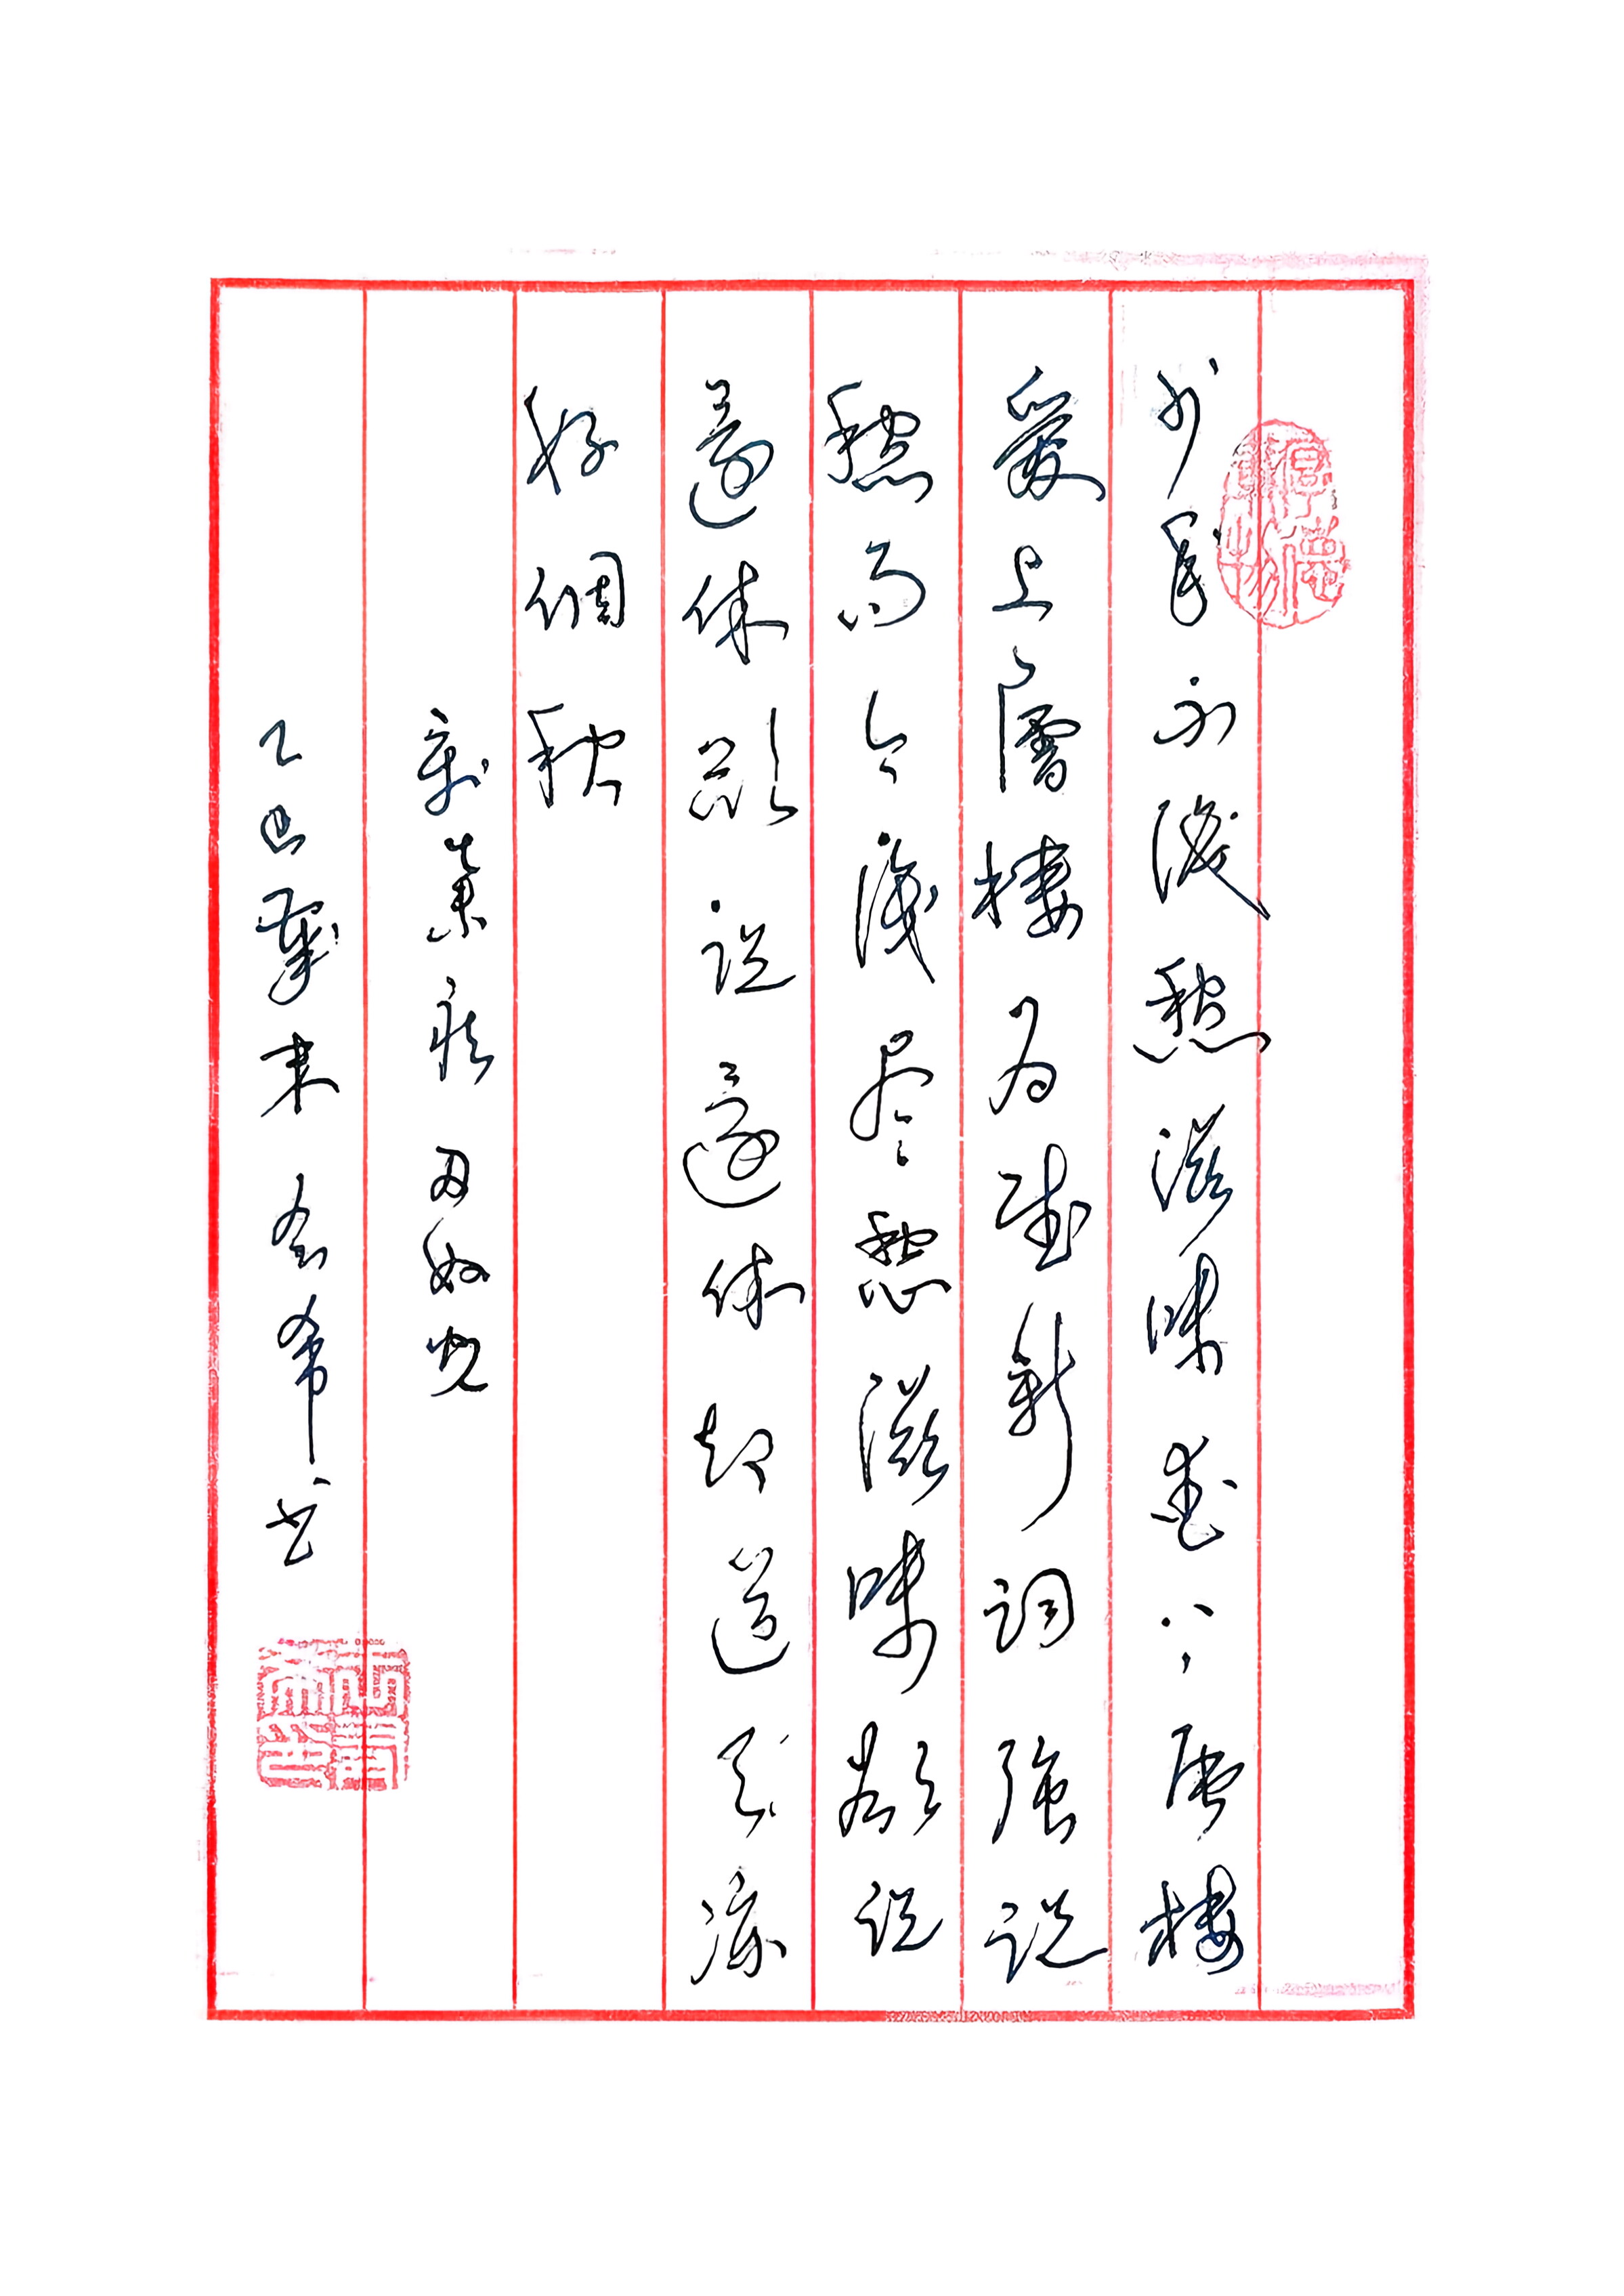 厚德載物
少年不識愁滋味愛上層樓
愛上層樓为賦新詞強說
愁而今識尽愁滋味欲說
還休欲說還休却道天涼
好個秋
辛棄疾 丑奴兒
乙巳歲末 希书